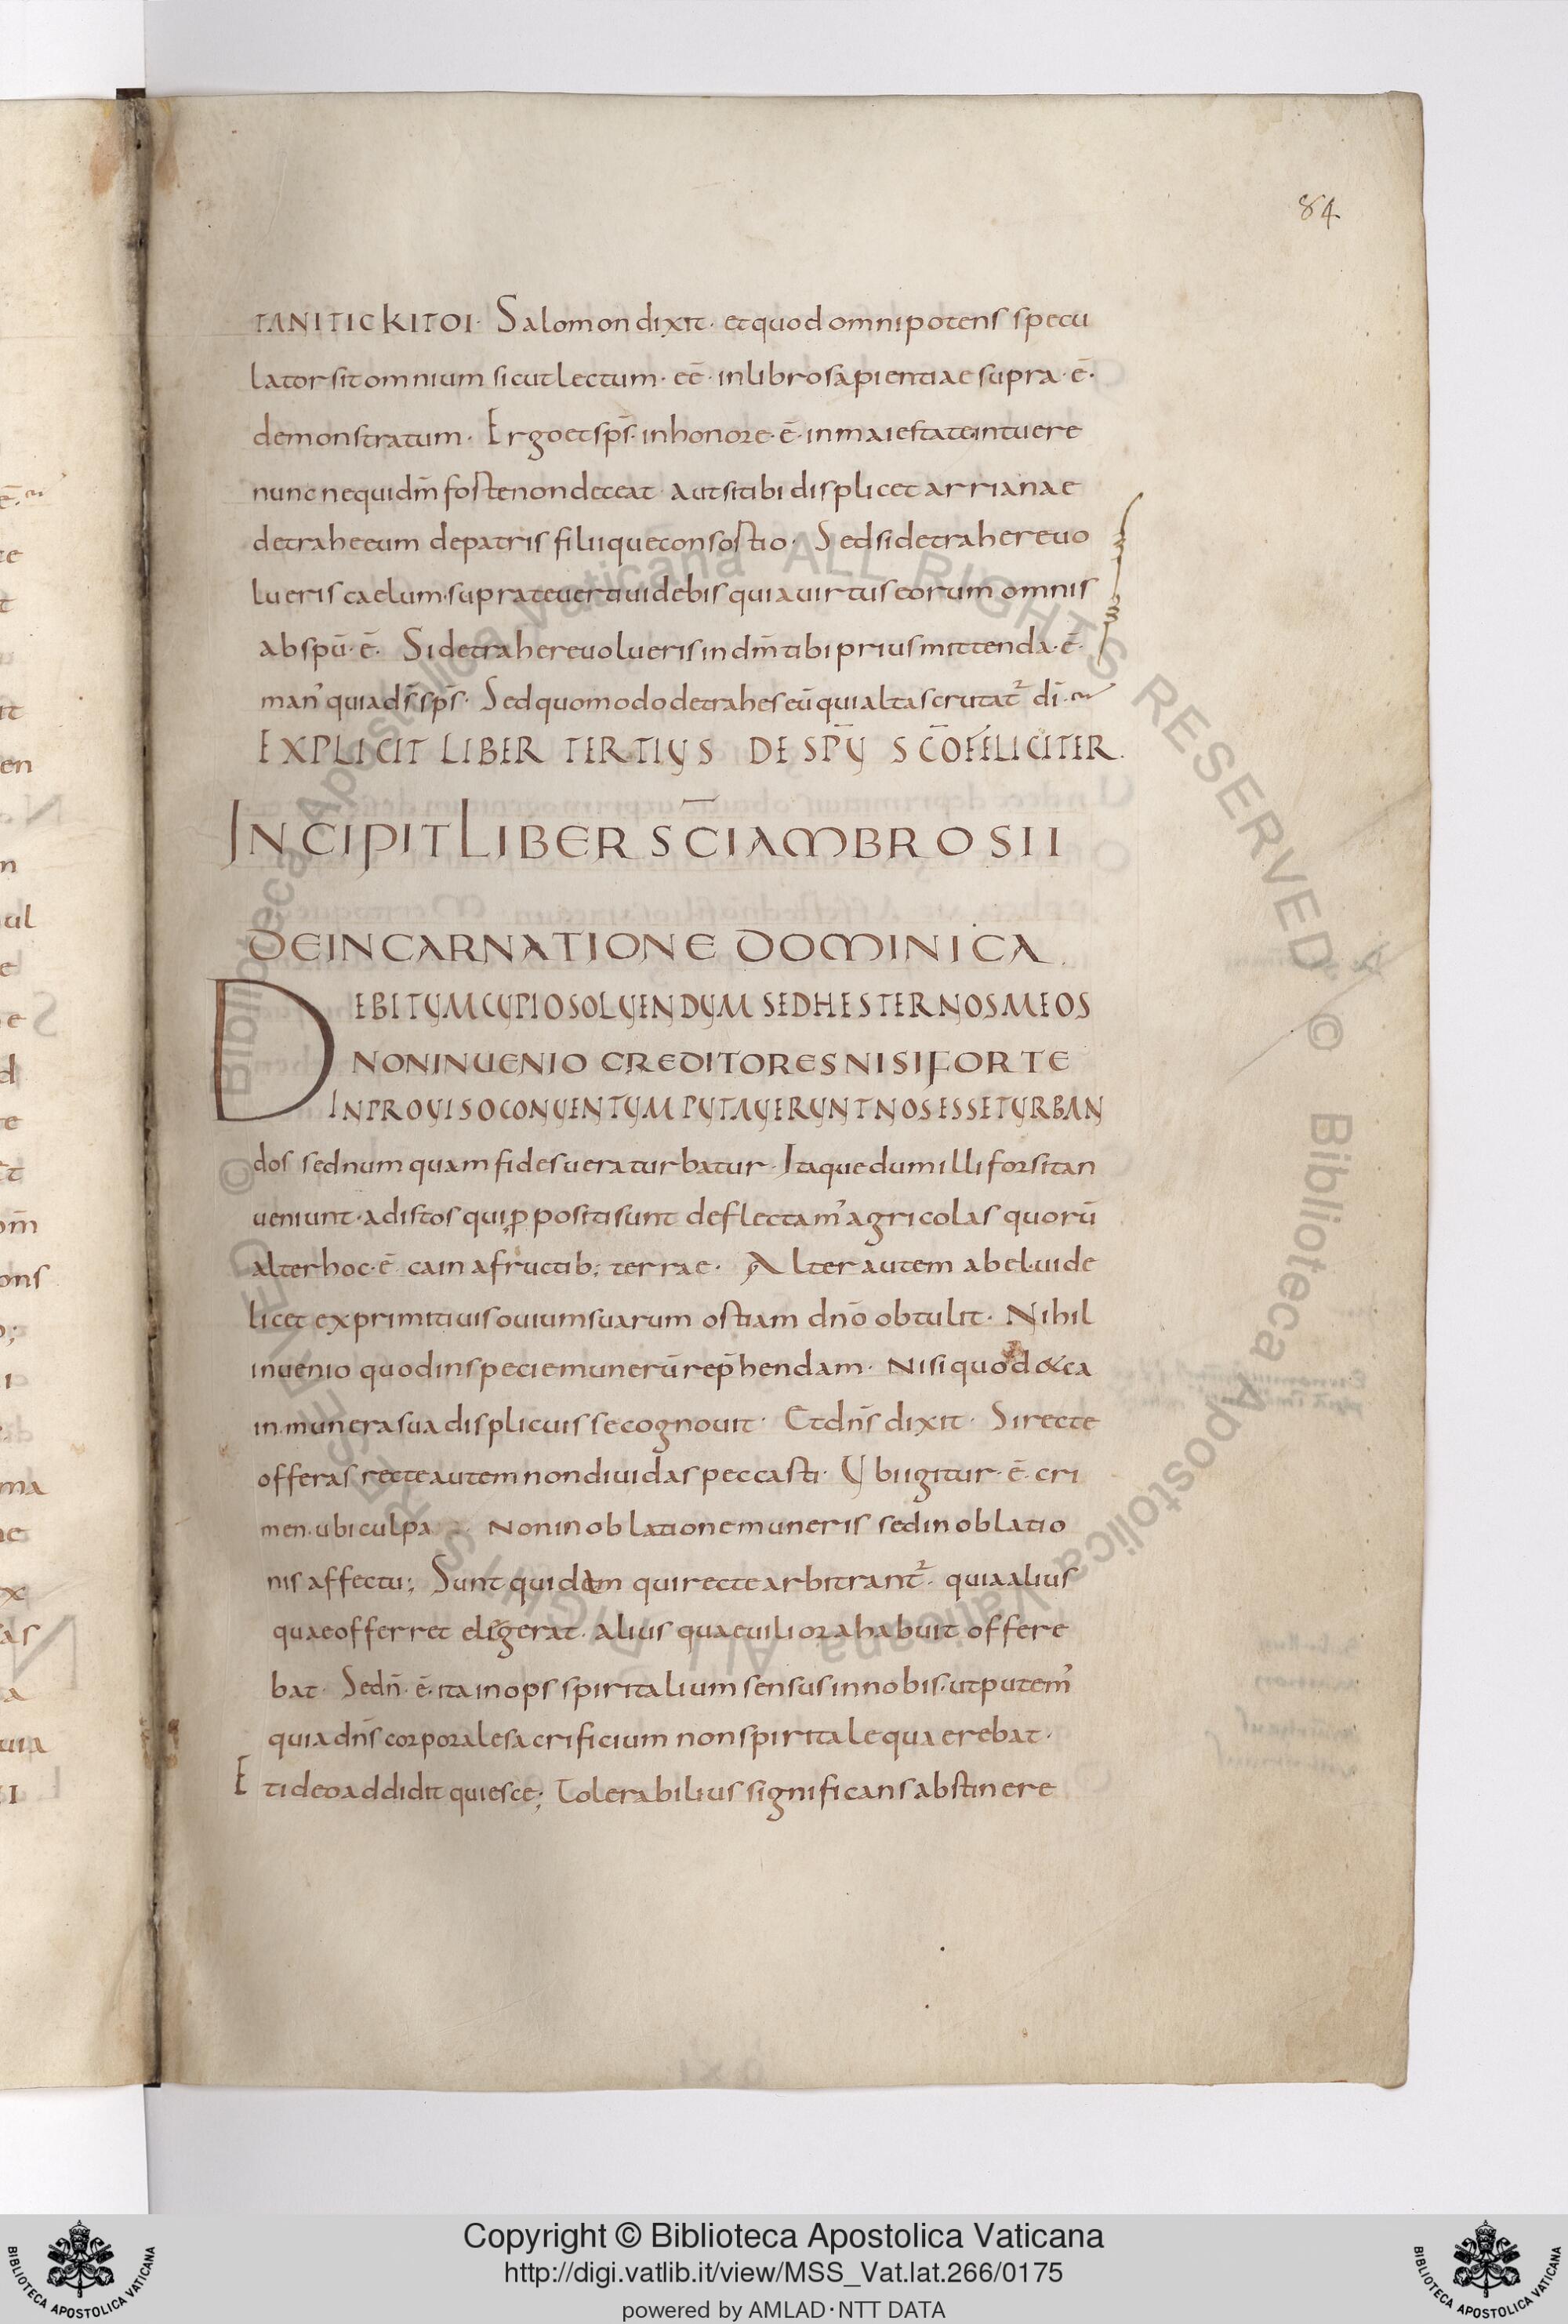 84
TANITICKITOI· Salomon dixit· et quod omnipotens specu
lator sit omnium sicut lectum· eē· in libro sapientiae supra· ē·
demonstratum· Ergo et sps̄· in honore· ē· in maiestate intuere
nunc ne quidm̄ fostenondeceat· aut si tibi displicet arrianae
detrahe eum de patris filiique consostio· Sed si detrahere uo
lueris caelum· supra te uerti uidebis quia uirtus eorum omnis
ab spū· ē· Si detrahere uolueris in dm̄ tibi prius mittenda· ē·
man' quia ds̄ sps̄· Sed quomodo detrahes eū qui alta scrutat̄ dī·
EXPLICIT LIBER TERTIUS DE SPU SCO FELICITER·
INCIPIT LIBER SCI AMBROSII
DE INCARNATIONE DOMINICA·
DEBITUM CUPIO SOLUENDUM SED HESTERNOS MEOS
NON INUENIO CREDITORES NISI FORTE
INPROUISO CONUENTUM PUTAUERUNT NOS ESSE TURBAN
dos sed numquam fides uera turbatur· Itaque dum illi forsitan
ueniunt· ad istos qui ꝓpositi sunt deflectam' agricolas quorū
alter hoc· ē· cain a fructib; terrae· Alter autem abel· uide
licet ex primitiuis ouium suarum ostiam dnō obtulit· Nihil
inuenio quod in specie munerū rep̄hendam· Nisi quod & ca
in· munera sua displicuisse cognouit· Et dns̄ dixit· Si recte
offeras recte autem non diuidas peccasti· Ubi igitur· ē· cri
men· ubi culpa· Non in oblatione muneris sed in oblatio
nis affectu; Sunt quidem qui recte arbitrant̄· quia alius
quae offerret eligerat· alius quae uiliora habuit offere
bat· Sed n̄· ē· ita inops spiritalium sensus in nobis· ut putem'
quia dns̄ corporale sacrificium non spiritale quaerebat·
Et ideo addidit quiesce; Tolerabilius significans abstinere
Copyright © Biblioteca Apostolica Vaticana
http://digi.vatlib.it/view/MSS_Vat.lat.266/0175
powered by AMLAD·NTT DATA